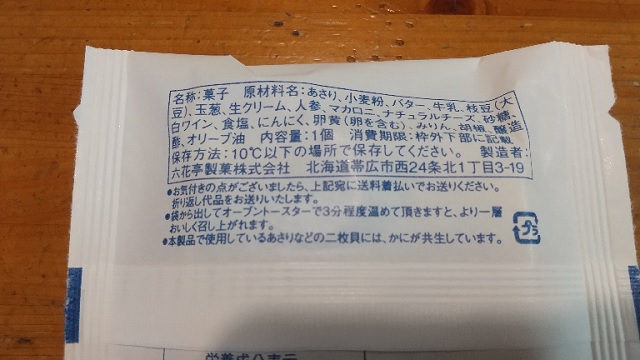 名称:菓子 原材料名:あさり、小麦粉、バター、牛乳、枝豆(大
豆)、玉葱、生クリーム、人参、マカロニ、ナチュラルチーズ、砂糖、
白ワイン、食塩、にんにく、卵黄(卵を含む)、みりん、胡椒、醸造
酢、オリーブ油 内容量:1個 消費期限:枠外下部に記載
保存方法:10℃以下の場所で保存してください。 製造者:
六花亭製菓株式会社 北海道帯広市西24条北1丁目3-19
●お気付きの点がございましたら、上記宛に送料着払いでお送りください。
折り返し代品をお送りいたします。
●袋から出してオーブントースターで3分程度温めて頂きますと、より一層
おいしく召し上がれます。
●本製品で使用しているあさりなどの二枚貝には、かにが共生しています。
プラ